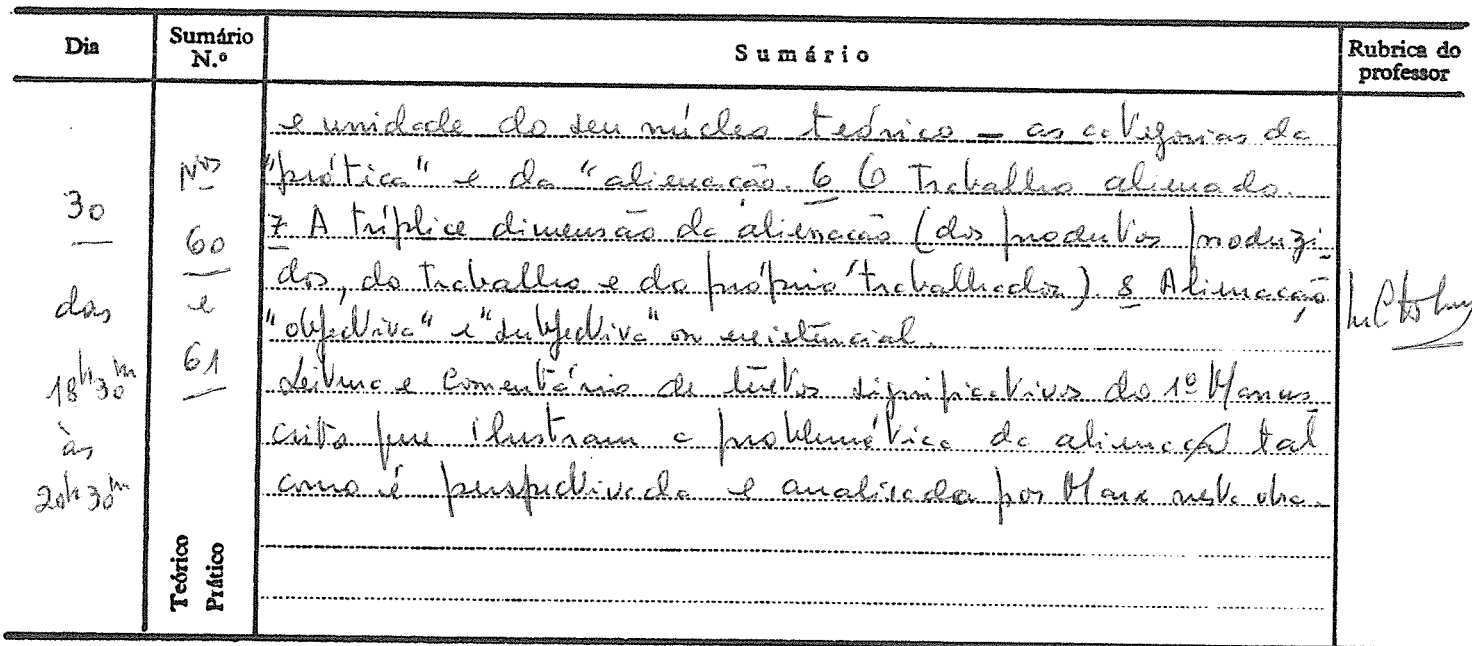 Dia
Sumário N.º
Sumário
Rubrica do professor
30
das
18h30m
às
20h30m
Nos
60
e
61
Teórico
Prático
e unidade do seu núcleo teórico = as categorias da
"prática" e da "alienação. 6 O Trabalho alienado.
7 A tríplice dimensão da alienação (dos produtos produzi-
dos, do trabalho e do próprio trabalhador). 8 Alienação
"objectiva" e "subjectiva" ou existencial.
Leitura e comentário de textos significativos do 1º Manus-
crito que ilustram a problemática da alienação tal
como é perspectivada e analisada por Marx nesta obra.